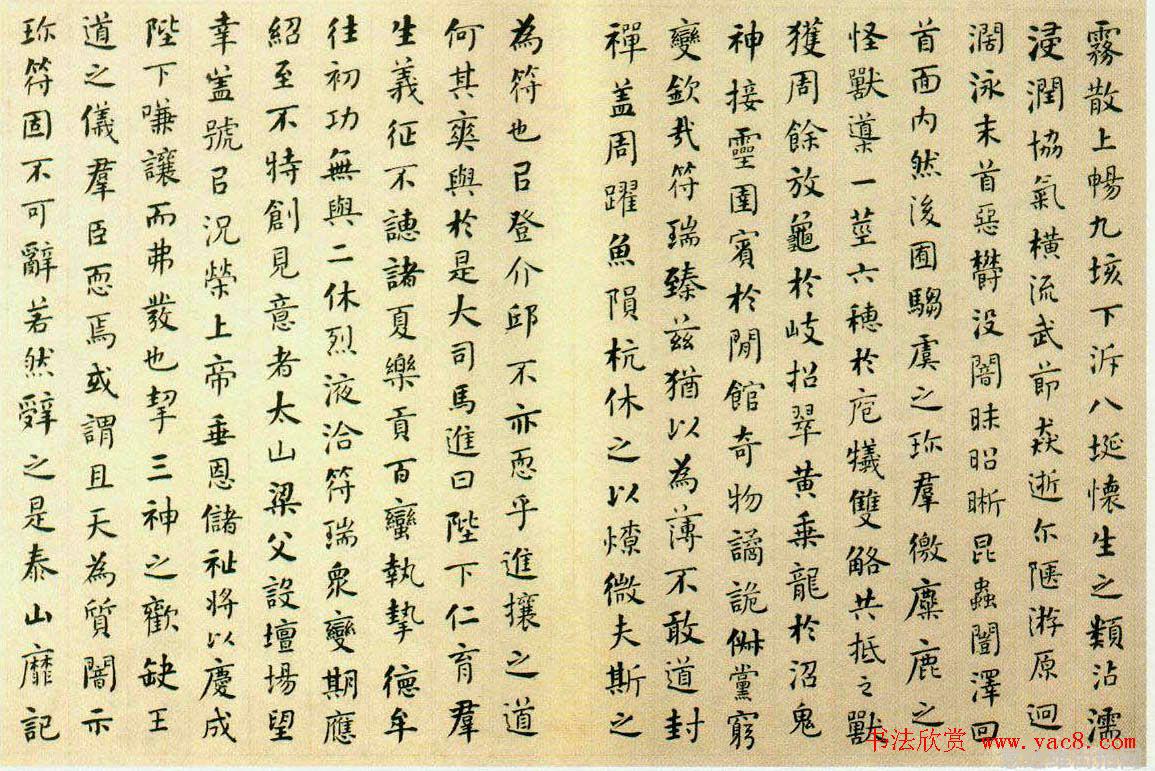 霧散上暢九垓下泝八埏懷生之類沾濡
浸潤協氣橫流武節猋逝尒陿游原迥
濶泳末首惡欝没闇昧昭晣昆蟲闓澤回
首面内然後囿騶虞之珎羣徼麋鹿之
怪獸導一莖六穗於庖犧雙觡共抵之獸
獲周餘放龜於岐招翠黄乗龍於沼鬼
神接靈圉賓於閒館奇物譎詭俶黨窮
變欽㢤符瑞臻兹猶以為薄不敢道封
禪盖周躍魚隕杭休之以燎微夫斯之
為符也㠯登介邱不亦恧乎進攘之道
何其爽與於是大司馬進曰陛下仁育羣
生義征不譓諸夏樂貢百蠻執摯德牟
往初功無與二休烈液洽符瑞衆變期應
紹至不特創見意者太山梁父設壇場望
幸盖號㠯況榮上帝垂恩儲祉將以慶成
陛下嗛讓而弗發也挈三神之歡缺王
道之儀羣臣恧焉或謂且天為質闇示
珎符固不可辭若然辤之是泰山靡記
书法欣赏 www.yac8.com